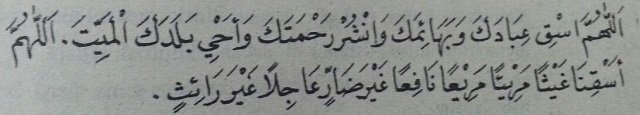 اَللّٰهُمَّ اسْقِ عِبَادَكَ وَبَهَائِمَكَ وَانْشُرْ رَحْمَتَكَ وَأَحْيِ بَلَدَكَ الْمَيِّتَ. اَللّٰهُمَّ
أَسْقِنَا غَيْثًا مَرِيْئًا مَرِيْعًا نَافِعًا غَيْرَ ضَارٍّ عَاجِلًا غَيْرَ رَائِثٍ.